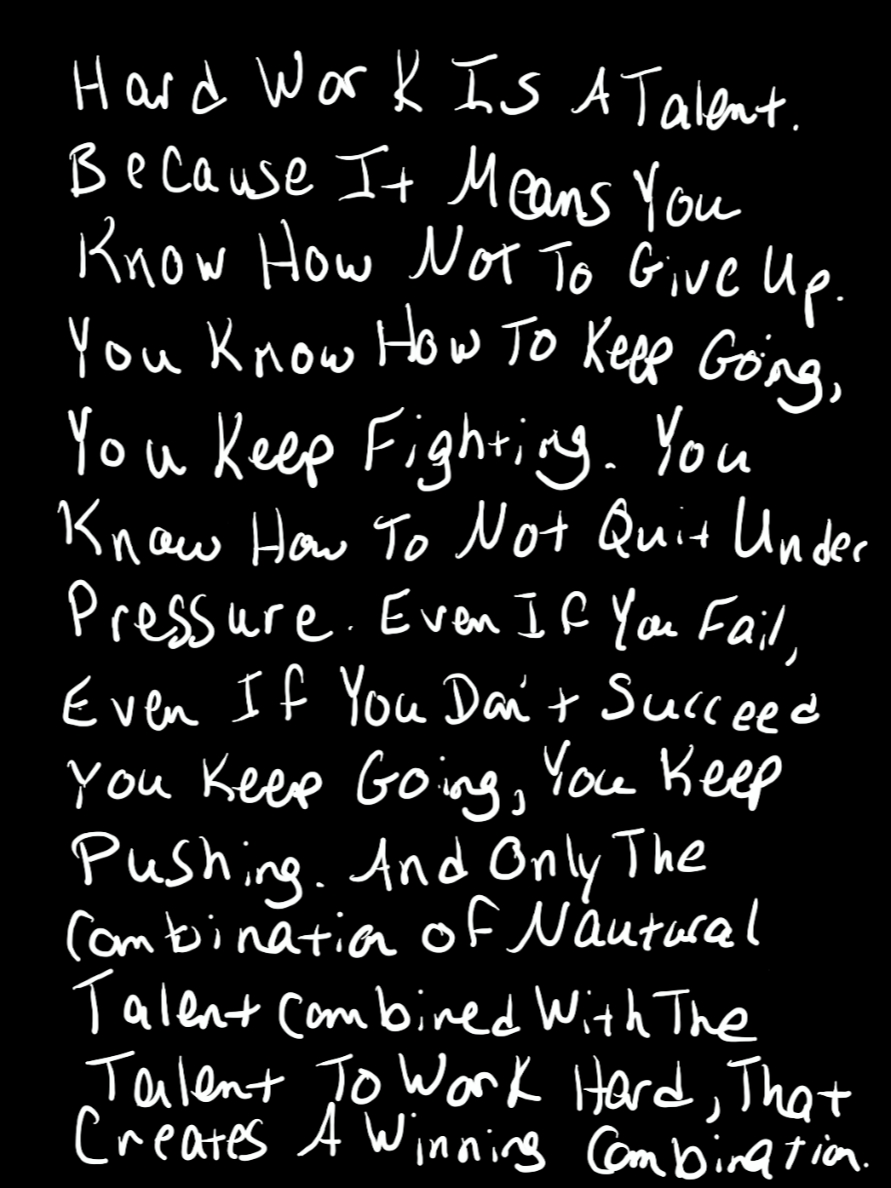 Hard Work Is A Talent.
Because It Means You
Know How Not To Give Up.
You Know How To Keep Going,
You Keep Fighting. You
Know How To Not Quit Under
Pressure. Even If You Fail,
Even If You Don't Succeed
You Keep Going, You Keep
Pushing. And Only The
Combination of Nautural
Talent Combined With The
Talent To Work Hard, That
Creates A Winning Combination.